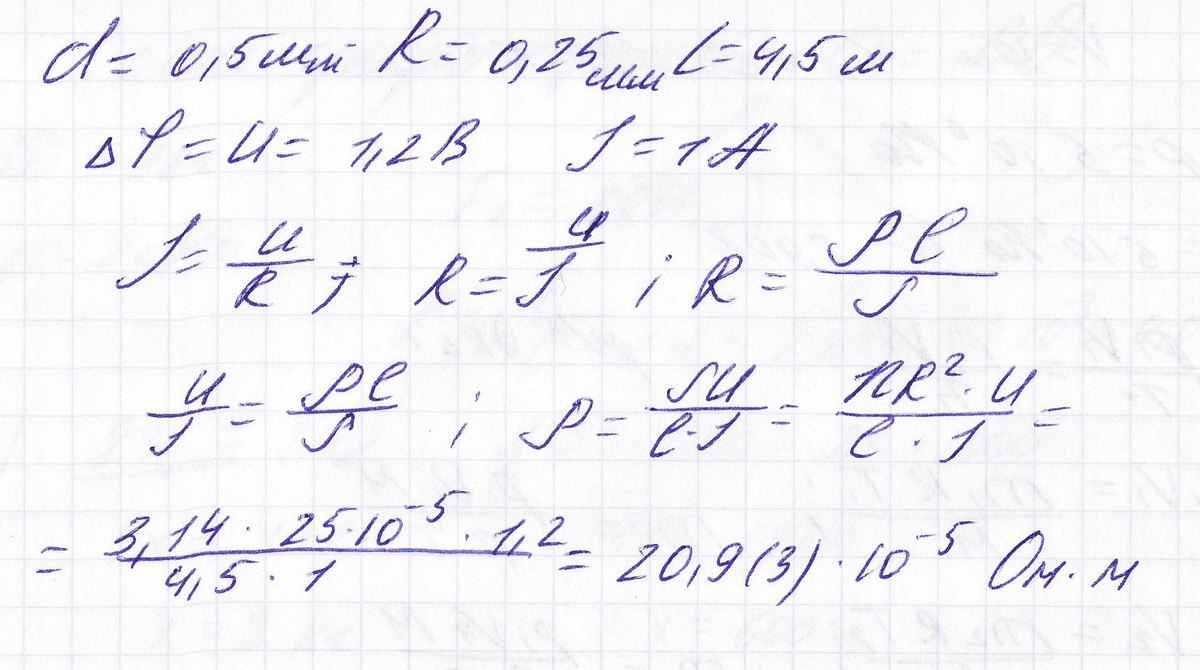 d = 0,5мм R = 0,25мм L = 4,5м
Δφ = U = 1,2В J = 1А
J = U/R ; R = U/J ; R = ρℓ/S
U/J = ρℓ/S ; ρ = SU/ℓ·J = πR²·U/ℓ·J =
= 3,14 · 25·10⁻⁵ · 1,2/4,5 · 1 = 20,9(3) · 10⁻⁵ Ом·м